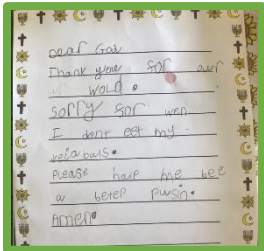 Dear God
Thank you for our
wold.
Sorry for wen
I dont eet my
vegabals.
Please halp me bee
a beter pursin.
Amen.